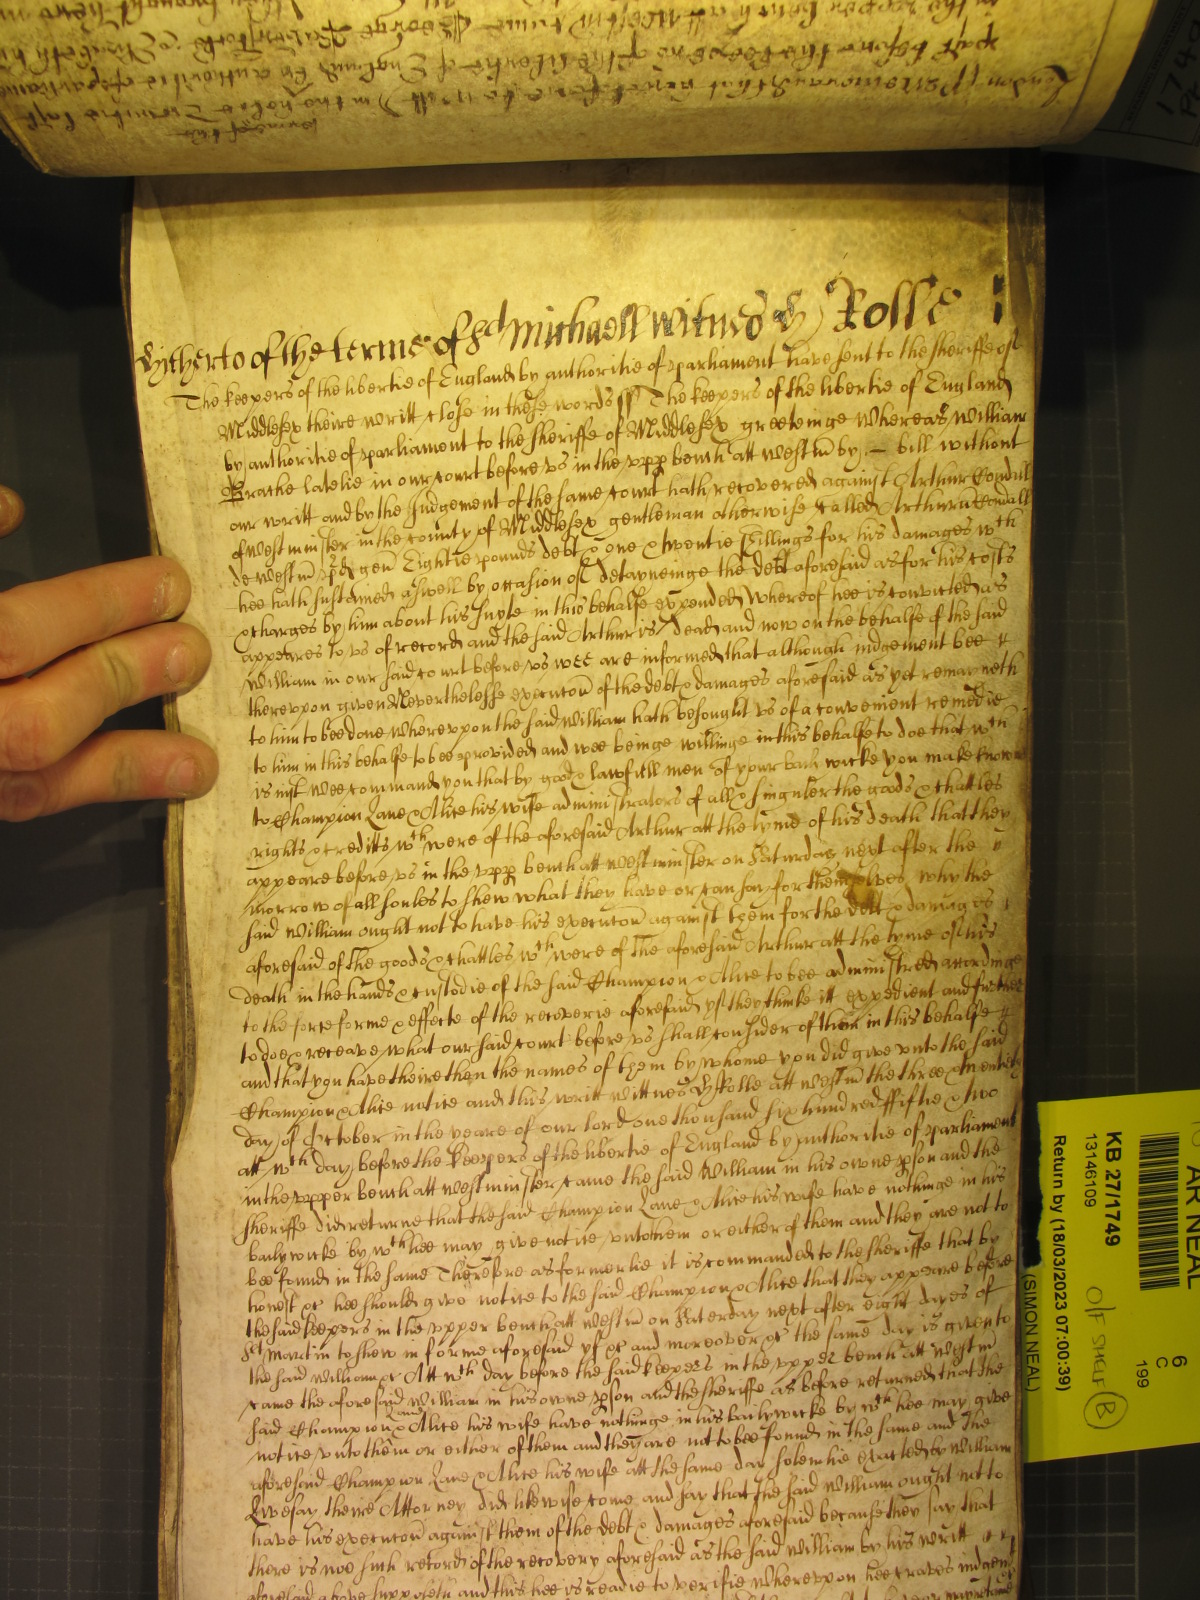 Hitherto of the terme of St Michaell witnes H Rolle
The keepers of the libertie of England by authoritie of parliament have sent to the sheriffe of
Middlesex theire writt close in these words ss The keepers of the libertie of England
by authoritie of parliament to the sheriffe of Middlesex greeteinge Whereas William
latelie in our court before us in the upp bench att Westm by bill without
our writt and by the Judgement of the same court hath recovered against Arthur
of Westminster in the county of Middlesex gentleman otherwise called Arthur
de Westm gen Eightie pounds debt & one & twentie shillings for his damages wch
hee hath susteined aswell by occasion of deteyneinge the debt aforesaid as for his costs
& charges by him about his suyte in this behalfe expended whereof hee is convicted as
appeares to us of record and the said Arthur is dead and now on the behalfe of the said
William in our said court before us wee are informed that although iudgement bee
thereupon given Neverthelesse execucon of the debt & damages aforesaid as yet remayneth
to him to bee done whereupon the said William hath besought us of a convenient remedie
to him in this behalfe to bee provided and wee beinge willinge in this behalfe to doe that wch
is iust wee command you that by good & lawfull men of your bailywicke you make knowne
to Champion Lane & Alice his wife administrators of all & singuler the goods & chattles
rights & creditts wch were of the aforesaid Arthur att the tyme of his death that they
appeare before us in the upp bench att Westminster on Saturday next after the
morrow of all soules to shew what they have or can say for themselves why the
said William ought not to have his execucon against them for the debt & damages
aforesaid of the goods & chattles wch were of the aforesaid Arthur att the tyme of his
death in the hands & custodie of the said Champion & Alice to bee administred accordinge
to the force forme & effecte of the recoverie aforesaid yf they thinke itt expedient and further
to doe & receave what our said court before us shall consider of them in this behalfe
and that you have theire then the names of them by whome you did give unto the said
Champion & Alice notice and this writt wittnes H Rolle att Westm the three &
day of October in the yeare of our lord one thousand six hundred fiftie & two
att wch day before the keepers of the libertie of England by authoritie of parliament
in the upper bench att Westminster came the said William in his owne pson and the
sheriffe did returne that the said Champion Lane & Alice his wife have nothinge in his
bailywicke by wch hee may give notice unto them or either of them and they are not to
bee found in the same Therefore as formerlie it is commanded to the sheriffe that by
honest &c hee should give notice to the said Champion & Alice that they appeare before
the said keepers in the upper bench att Westm on Saterday next after eight dayes of
St Martin to shew in forme aforesaid yf &c and moreover &c the same day is given to
the said William &c Att wch day before the said keepers in the upper bench att Westm
came the aforesaid William in his owne pson and the sheriffe as before returned that the
said Champion Lane & Alice his wife have nothinge in his bailywicke by wch hee may give
notice unto them or either of them and they are not to bee found in the same and the
aforesaid Champion Lane & Alice his wife att the same day solemlie exacted by William
Livesay theire Attorney did likewise come and say that the said William ought not to
have his execucon against them of the debt & damages aforesaid because they say that
there is noe such record of the recovery aforesaid as the said William by his writt
aforesaid above supposeth and this hee is readie to verifie whereupon hee craves
AR NEAL
KB 27/1749
13146109
Return by (18/03/2023 07:00:39)
(SIMON NEAL)
6
C
199
O/F SHELF B